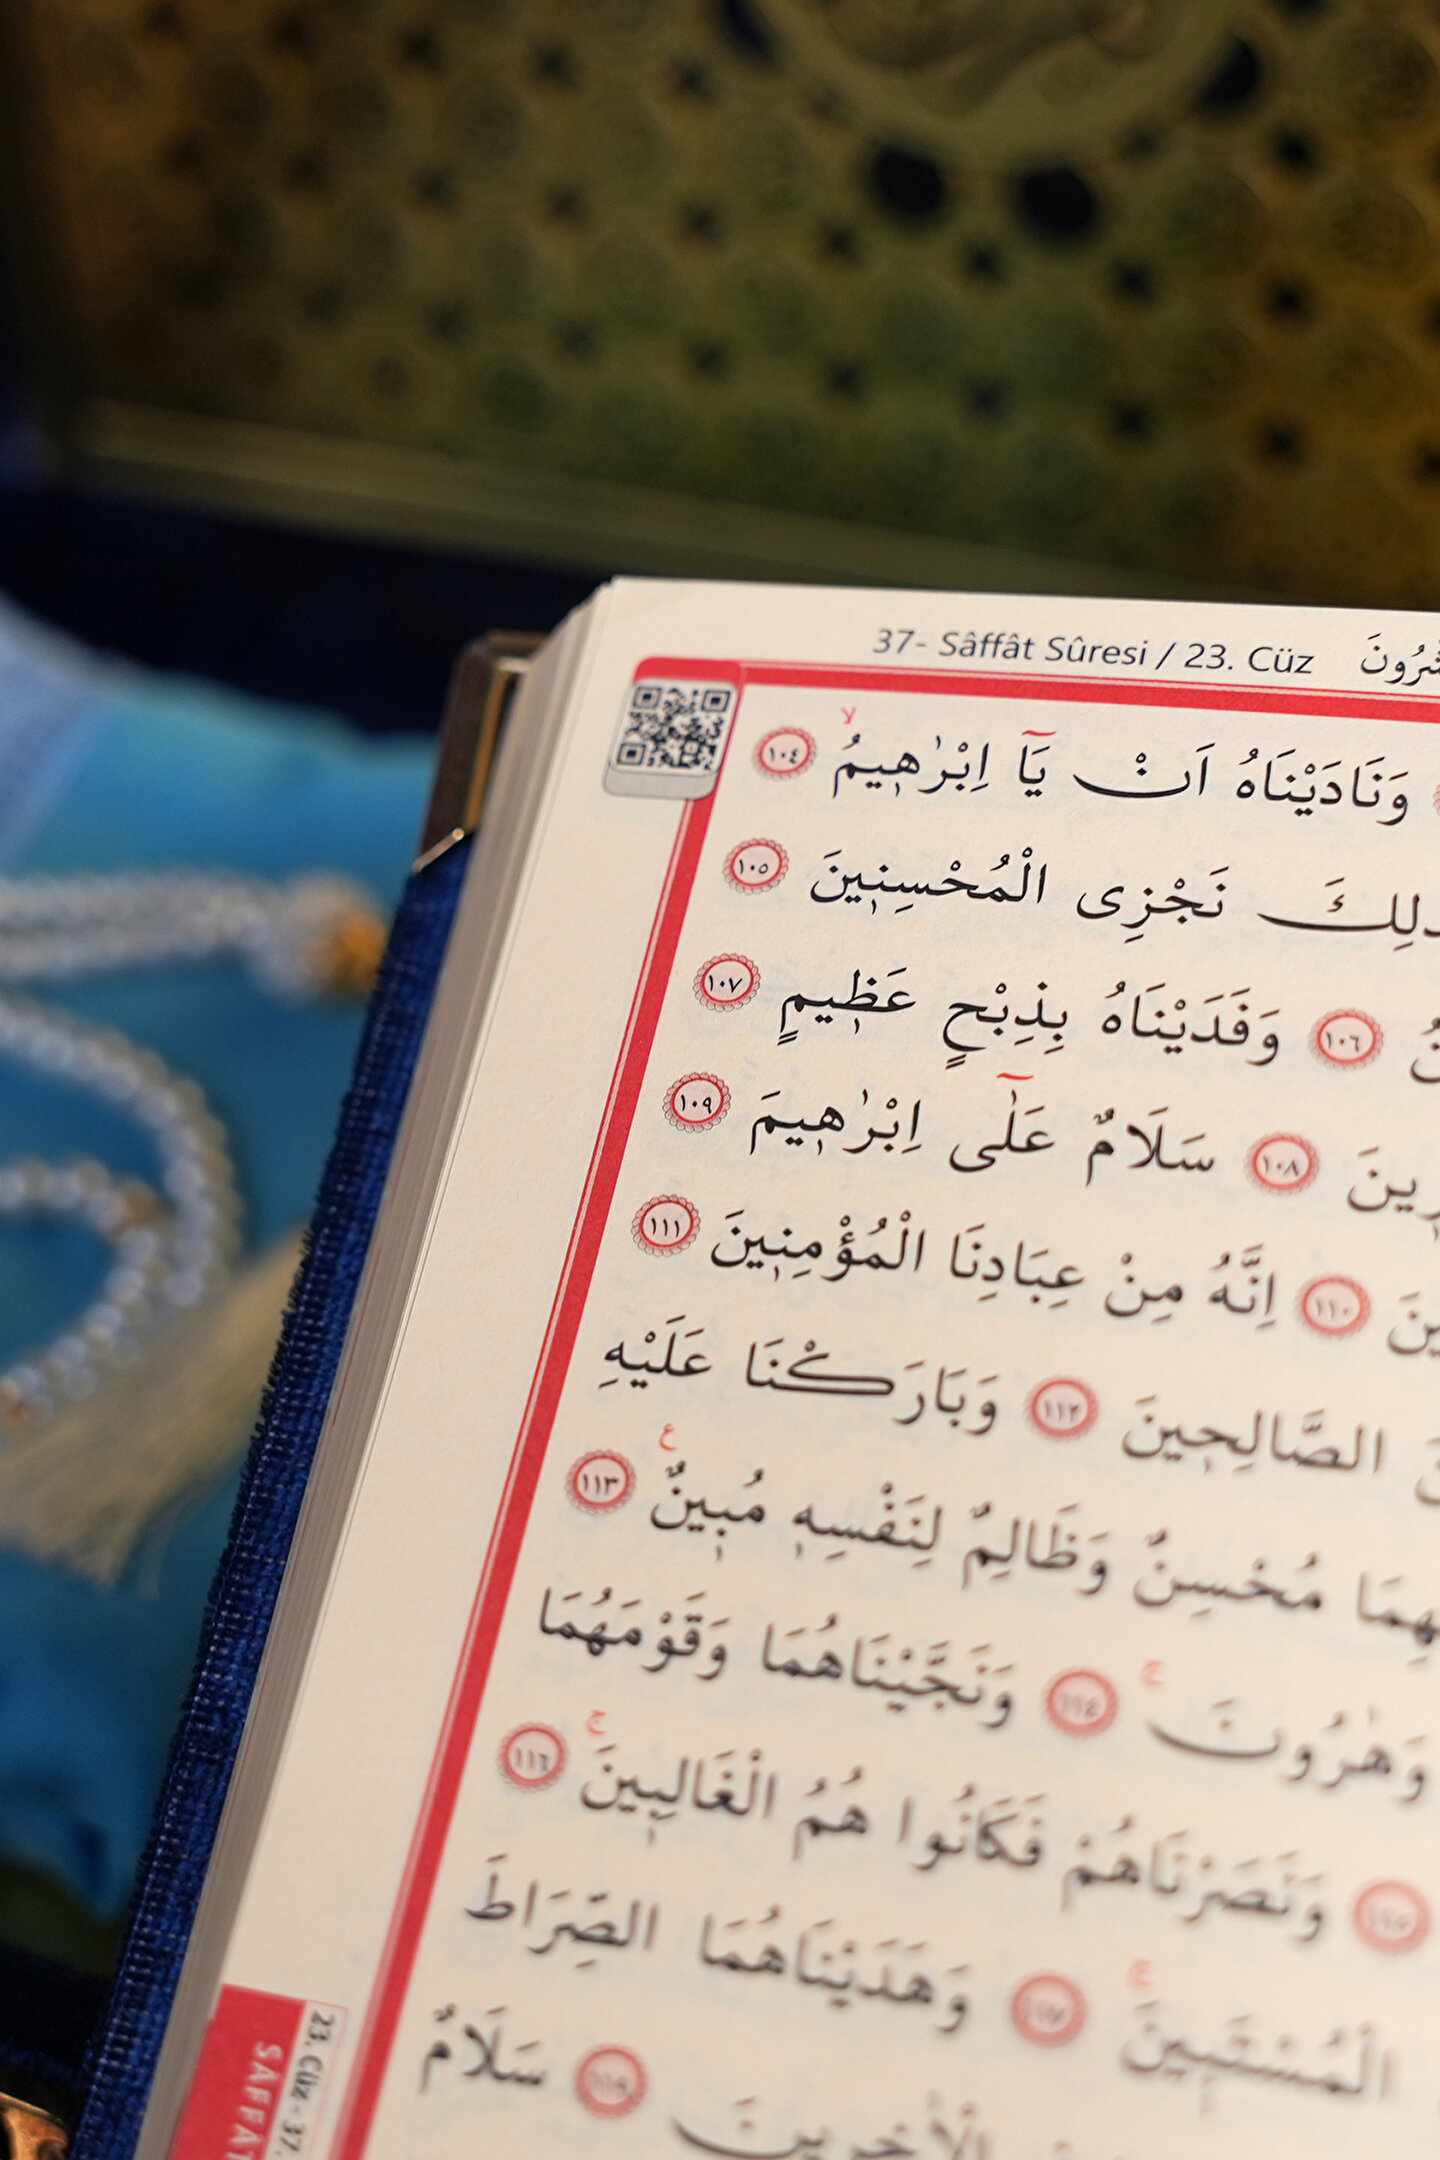 37- Sâffât Sûresi / 23. Cüz
وَنَادَيْنَاهُ اَنْ يَٓا اِبْرٰه۪يمُۙ ﴿١٠٤﴾
نَجْزِى الْمُحْسِن۪ينَ ﴿١٠٥﴾
﴿١٠٦﴾ وَفَدَيْنَاهُ بِذِبْحٍ عَظ۪يمٍ ﴿١٠٧﴾
﴿١٠٨﴾ سَلَامٌ عَلٰٓى اِبْرٰه۪يمَ ﴿١٠٩﴾
﴿١١٠﴾ اِنَّهُ مِنْ عِبَادِنَا الْمُؤْمِن۪ينَ ﴿١١١﴾
الصَّالِح۪ينَ ﴿١١٢﴾ وَبَارَكْنَا عَلَيْهِ
مُحْسِنٌ وَظَالِمٌ لِنَفْسِه۪ مُب۪ينٌ ع ﴿١١٣﴾
وَهٰرُونَۚ ﴿١١٤﴾ وَنَجَّيْنَاهُمَا وَقَوْمَهُمَا
﴿١١٥﴾ وَنَصَرْنَاهُمْ فَكَانُوا هُمُ الْغَالِب۪ينَۚ ﴿١١٦﴾
الْمُسْتَب۪ينَۚ ﴿١١٧﴾ وَهَدَيْنَاهُمَا الصِّرَاطَ
الْاٰخِر۪ينَ ﴿١١٩﴾ سَلَامٌ
23. Cüz - 37.